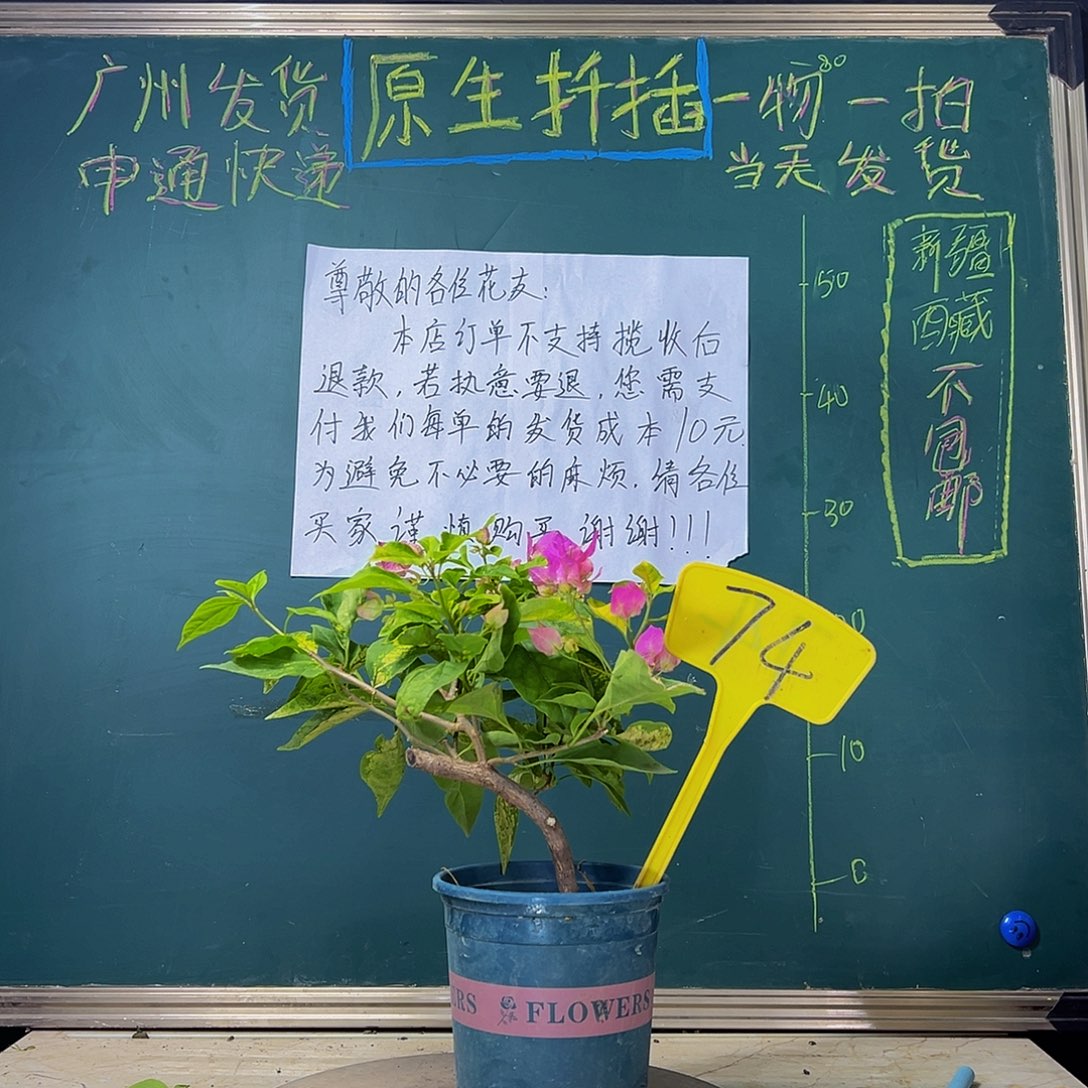 广州发货
申通快递
原生扦插
一物一拍
80
当天发货
新疆
西藏
不包邮
尊敬的各位花友：
本店订单不支持揽收后
退款，若执意要退，您需支
付我们每单的发货成本10元
为避免不必要的麻烦，请各位
买家谨慎购买 谢谢!!!
50
40
30
10
0
74
FLOWERS